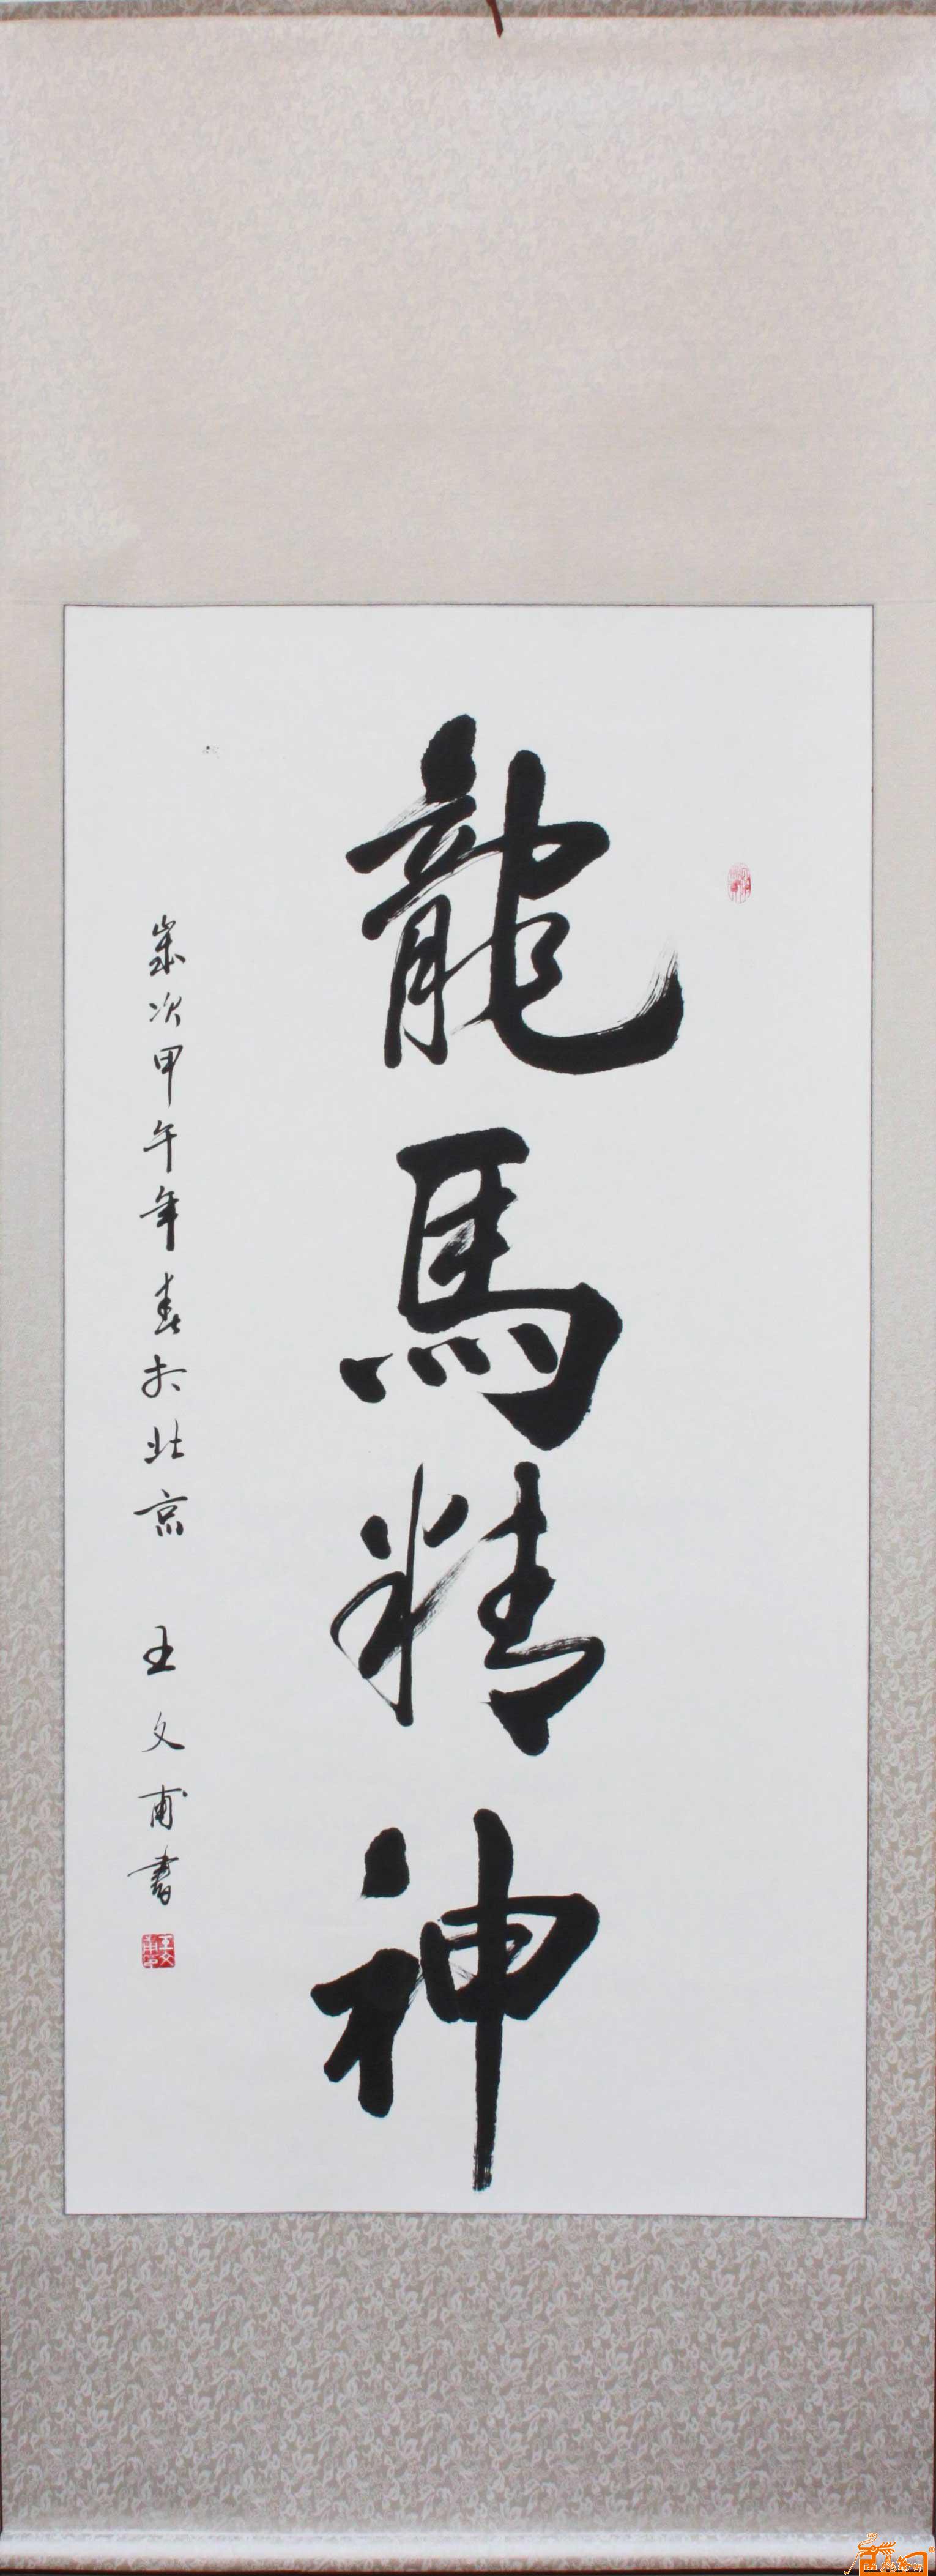 龍馬精神
歲次甲午年春於北京 王文甫書